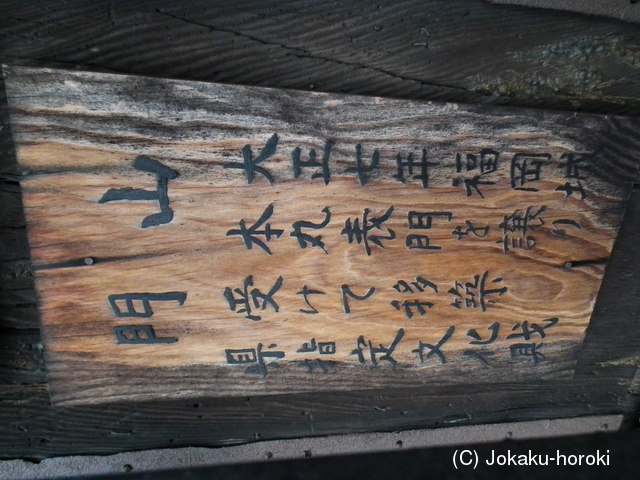 山門
大正七年福岡城
本丸表門を譲り
受けて移築
県指定文化財
(C) Jokaku-horoki